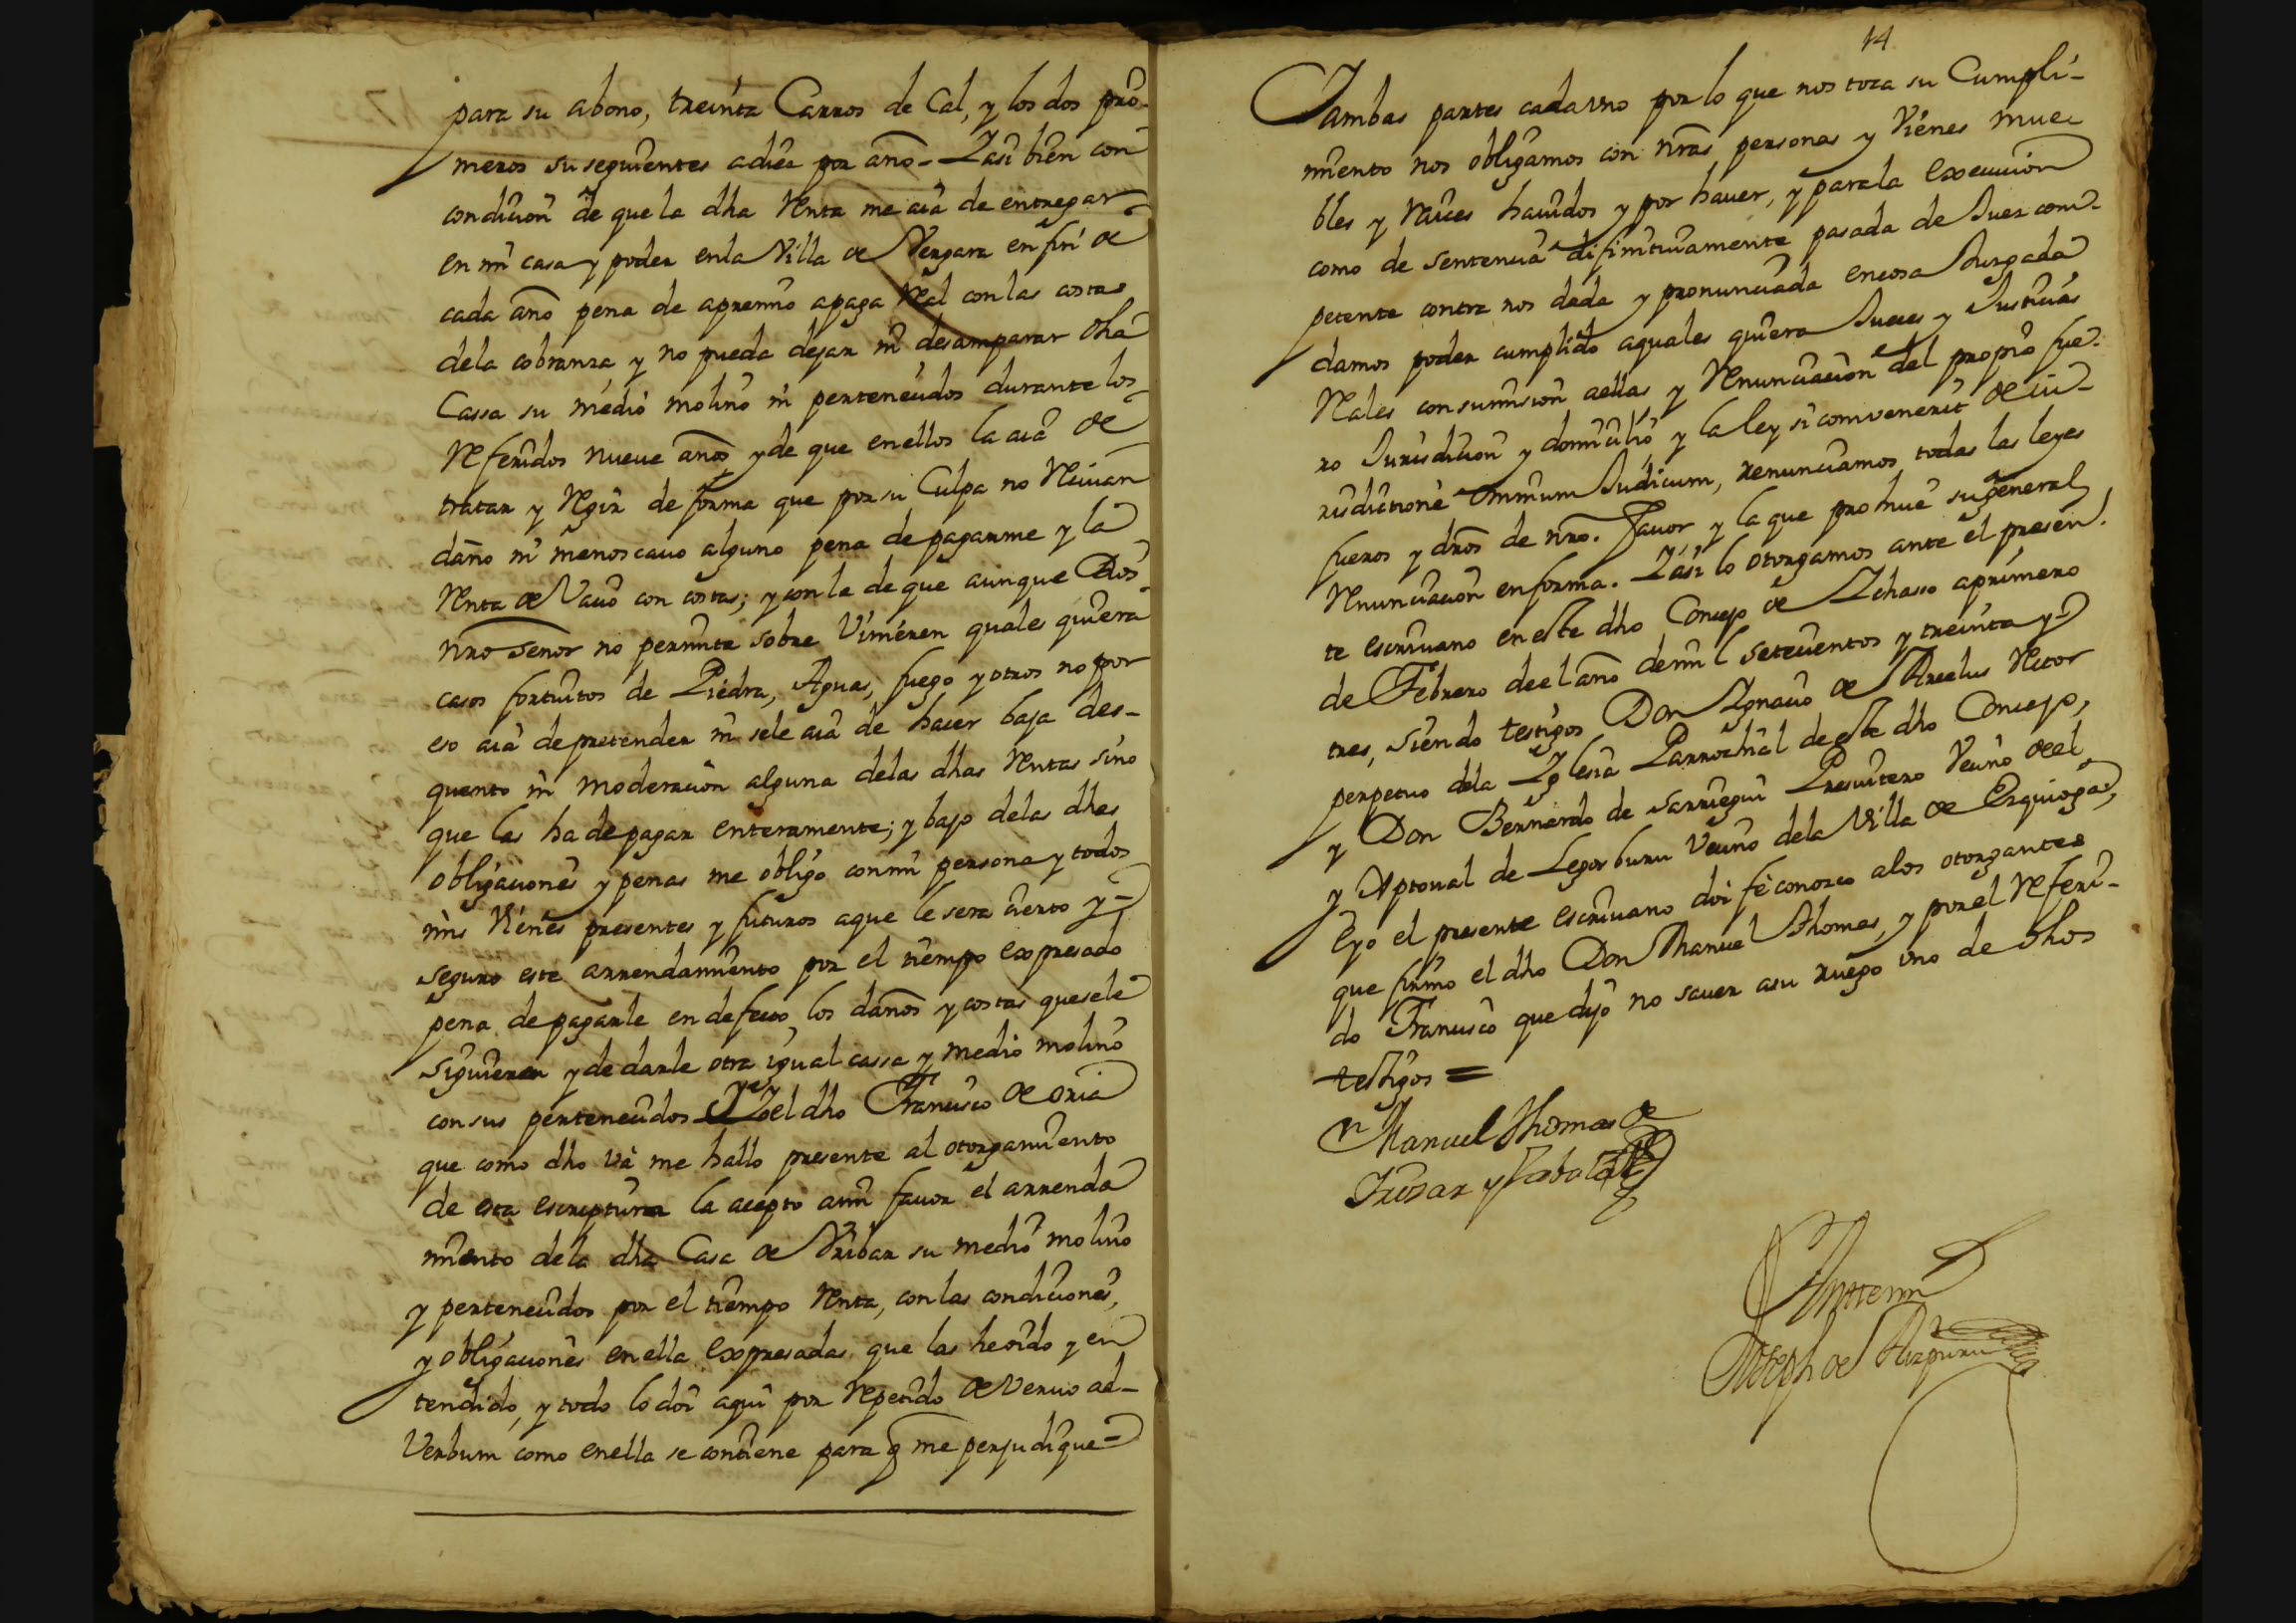 para su abono, treinta Carros de Cal, y los dos pri-
meros susequientes a diez por año - Y asi bien con
condicion de que la dha Renta me aia de entregar
en mi casa y poder en la Villa de Vergara en fin de
cada año pena de apremio a paga Real con las costas
de la cobranza y no pueda dejar ni desamparar dha
Cassa su medio molino ni pertenecidos durante los
Referidos nueve años, y de que en ellos la aia de
tratar y Regir de forma que por su Culpa no Recivan
daño ni menoscavo alguno pena de pagarme y la
Renta de Vacio con costas; y con la de que aunque Dios
nro Señor no permita sobre Viniéren quales quiera
casos fortuitos de Piedra, Aguas, fuego y otros no por
eso aia de pretender ni sele aia de hacer baja des-
quento ni moderacion alguna de las dhas Rentas sino
que las ha de pagar enteramente; y bajo de las dhas
obligaciones y penas me obligo con mi persona y todos
mis Vienes presentes y futuros a que le sera cierto y
seguro este arrendamiento por el tiempo expresado
pena de pagarle en defecto los daños y costas que sele
siguieren y de darle otra igual cassa y medio molino
con sus pertenecidos Y Yo el dho Francisco de oria
que como dho vá me hallo presente al otorgamiento
de esta escriptura la acepto a mi favor el arrenda
miento de la dha Casa de Yribar su medio molino
y pertenecidos por el tiempo Renta, con las condiciones,
y obligaciones en ella expresadas que las he oido y en
tendido, y todo lo doi aqui por Repetido de Vervo ad-
Verbum como en ella se contiene para q me perjudique
14
Y ambas partes cada vno por lo que nos toca su Cumpli-
miento nos obligamos con nras personas y Vienes mue
bles y Raices havidos y por haver, y para la execucion
como de sentencia difinitivamente pasada de Juez com-
petente contra nos dada y pronunciada en cosa Juzgada
damos poder cumplido a quales quiera Jueces y Justicias
Reales con sumision a ellas y Renunciacion del propio fue-
ro Jurisdicion y domicilio, y la ley si convenerit de iu-
risdictione omnium Judicum, renunciamos todas las leyes
fueros y dros de nro. favor y la que prohive su general
Renunciacion en forma. Y asi lo otorgamos ante el presen-
te escrivano en este dho Concejo de Ychasso a primero
de Febrero de el año de mil setecientos y treinta y
tres, siendo testigos Don Ygnacio de Rector
perpetuo de la Yglesia Parrochial de este dho Concejo,
y Don Bernardo de Sarriegui Presvitero Vecino de el
y Xptoval de Legorburu Vecino de la Villa de Ezquioga,
E yo el presente escrivano doi fé conozco a los otorgantes
que firmo el dho Don Manuel Thomas, y por el Referi-
do Francisco que dijo no saver a su ruego vno de dhos
testigos =
Dn Manuel Thomas de
Yrizar y Zabala
Antemi
Joseph de Aizpuru